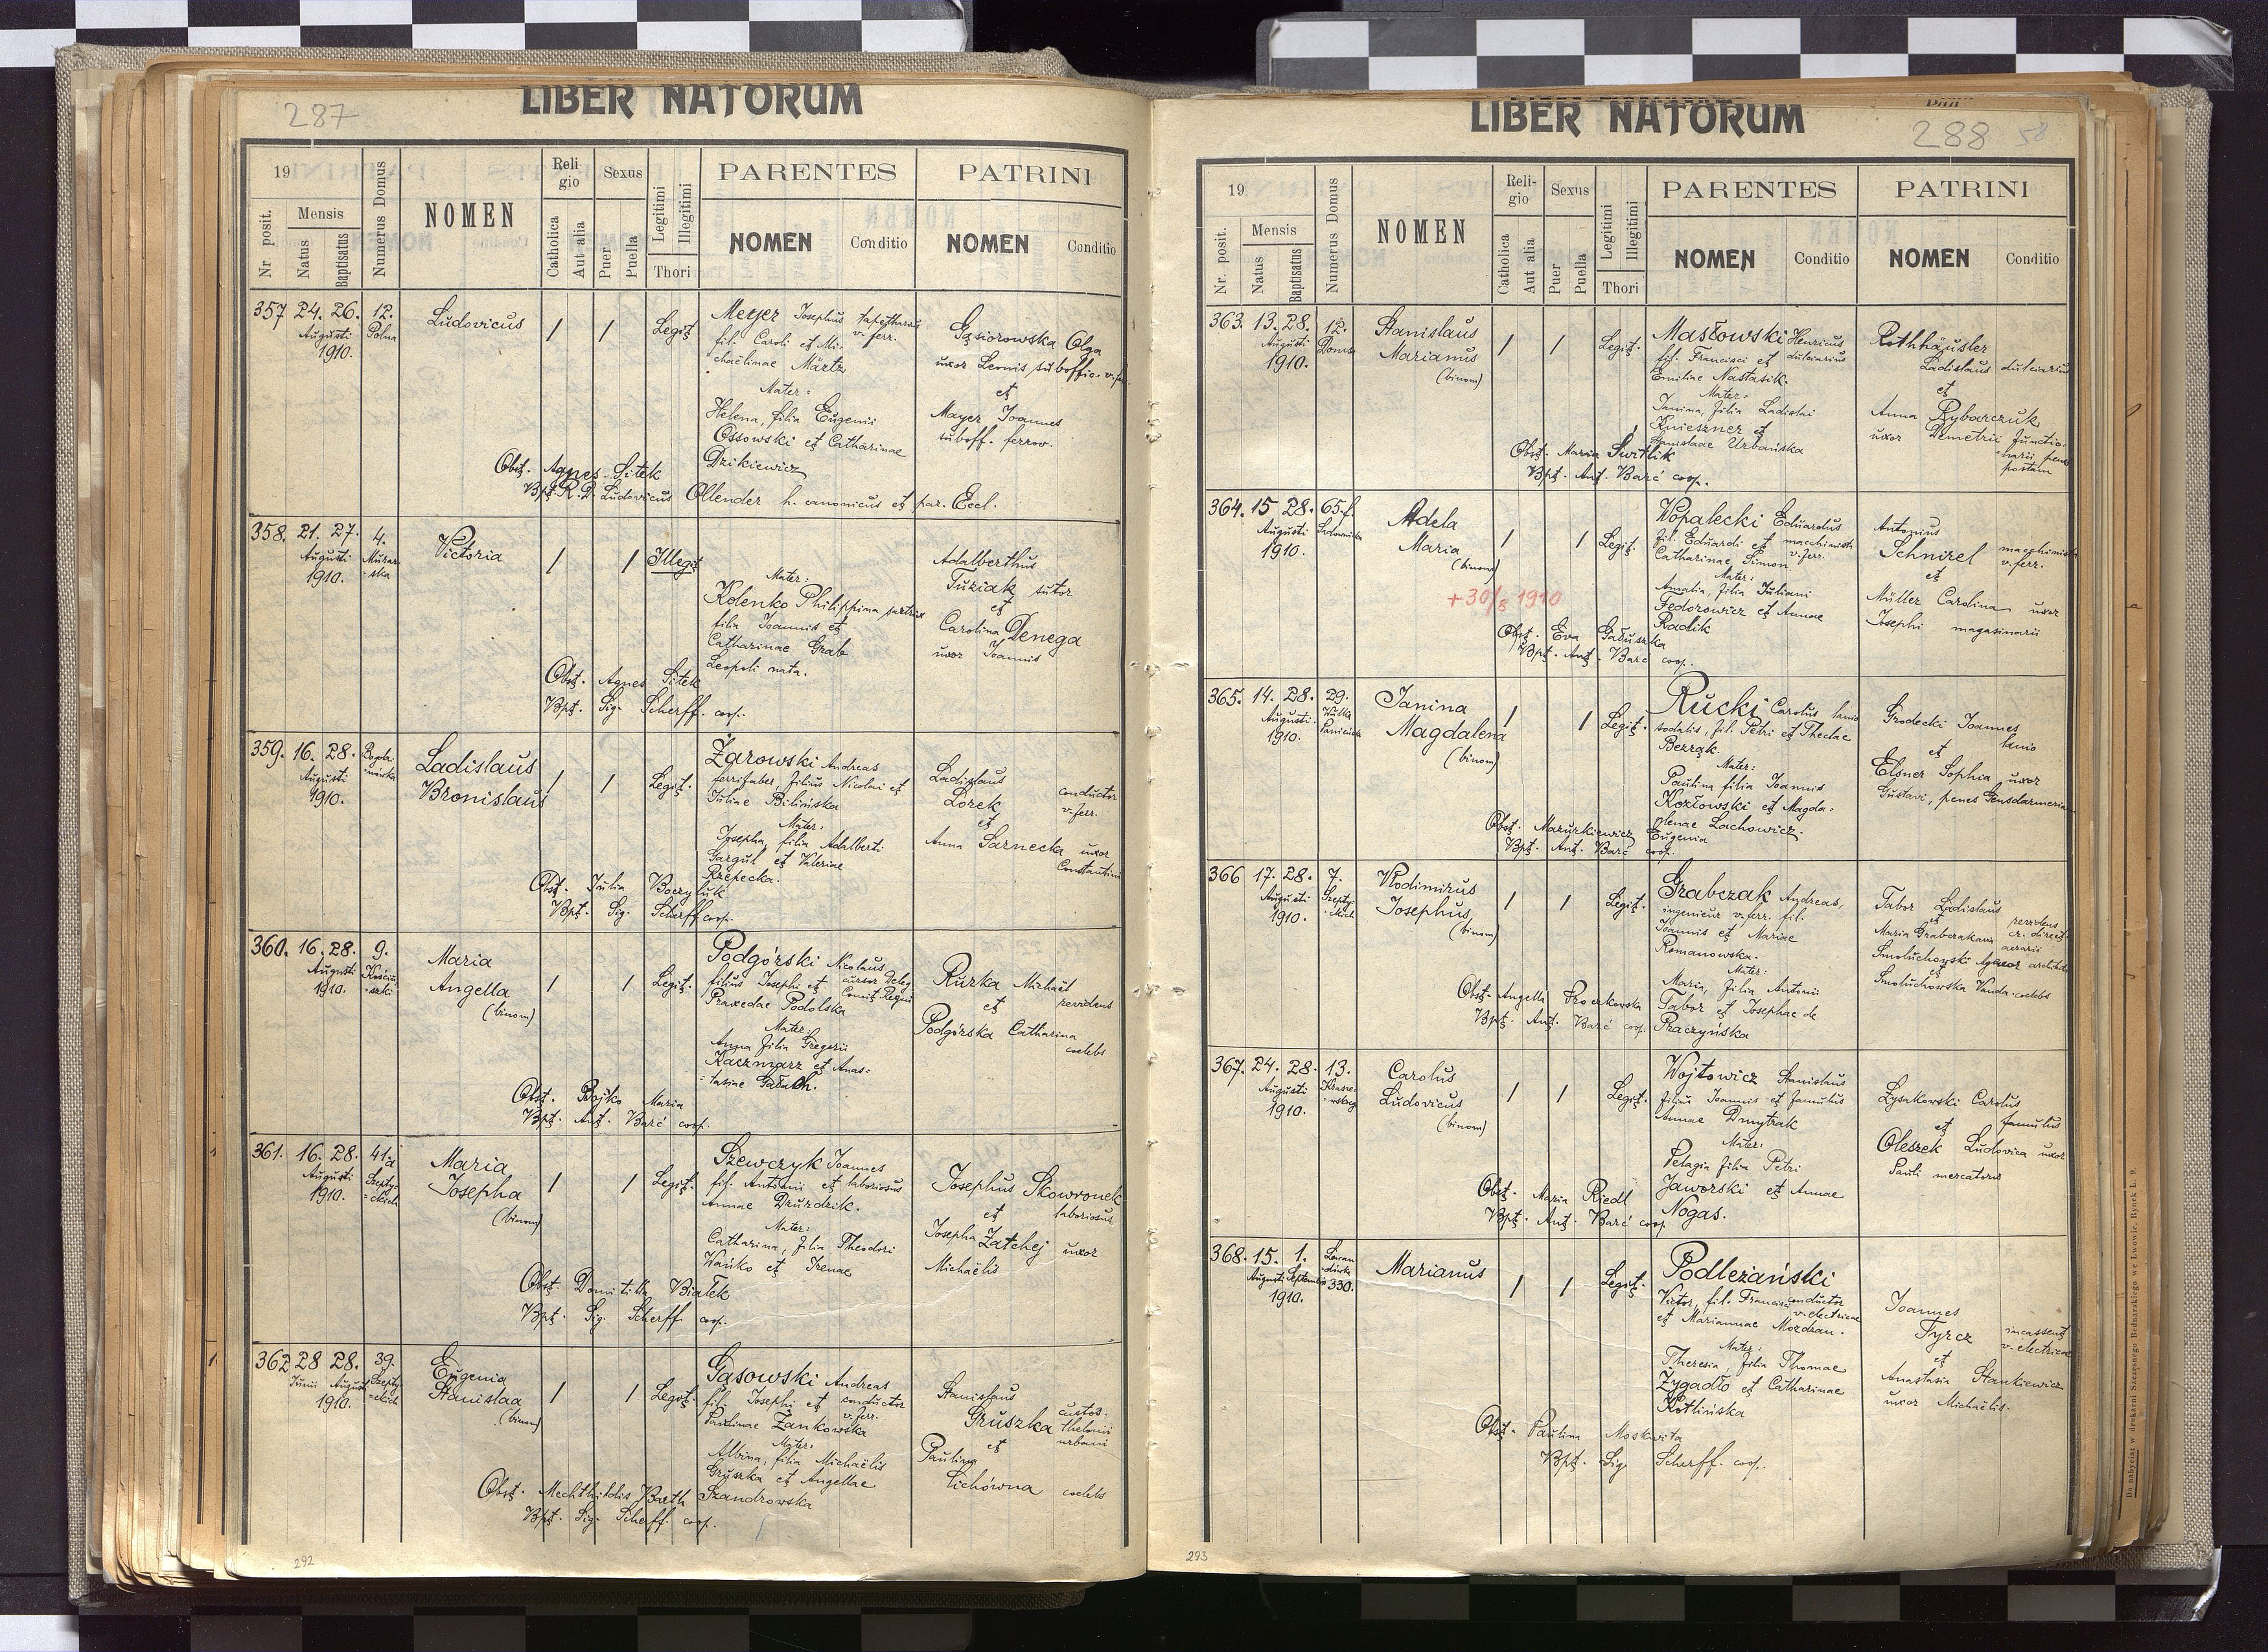 287
LIBER NATORUM
19
Nr. posit.
Mensis
Natus
Baptisatus
Numerus Domus
NOMEN
Religio
Catholica
Aut alia
Sexus
Puer
Puella
Legitimi
Illegitimi
Thori
PARENTES
NOMEN
Conditio
PATRINI
NOMEN
Conditio
357 24. 26. 12.
Augusti Polna
1910.
Ludovicus
/ / Legit.
Meyer Josephus
v. ferr.
fil. Caroli et Mi-
chaëlinae Märtz
Mater:
Helena, filia Eugenii
Ossowski et Catharinae
Dzikiewicz
Gąsiorowska Olga
uxor Leonis suboffic. v. fer.
et
Mayer Joannes
suboff. ferrov.
Obst. Agnes Sitek
Bpt. R. D. Ludovicus Ollender h. canonicus et par. Eccl.
358. 21. 27. 4.
Augusti Murar-
1910. -ska
Victoria
/ / Illegit
Mater:
Kolenko Philippina sartrix
filia Joannis et
Catharinae Grab
Leopoli nata.
Adalberthus
Tuziak sutor
et
Carolina Denega
uxor Joannis
Obst. Agnes Sitek
Bpt. Sig. Scherff. coop.
359. 16. 28. Bogda-
Augusti -nówka
1910.
Ladislaus
Bronislaus
/ / Legit.
Żarowski Andreas
ferrifaber, filius Nicolai et
Juliae Bilińska
Mater:
Josepha, filia Adalberti
Gargul et Valeriae
Rzepecka.
Ladislaus conductor
Lorek v. ferr.
et
Anna Sarnecka uxor
Constantini
Obst. Julia Boczyluk
Bpt. Sig. Scherff coop.
360. 16. 28. 9.
Augusti Kościu-
1910. -szki
Maria
Angella
(binom)
/ / Legit.
Podgórski Nicolaus
filius Josephi et cursor Deleg
Praxedae Podolska Comit. Regni
Mater:
Anna filia Gregorii
Kaczmarz et Anas-
-tasiae Gałach.
Rurka Michaël
et revidens
Podgórska Catharina
coelebs
Obst. Bojko Maria
Bpt. Ant. Barć coop.
361. 16. 28. 41a
Augusti Szepty-
1910. -ckich
Maria
Josepha
(binom)
/ / Legit.
Szewczyk Joannes
fil. Antonii et laboriosus
Annae Druzdzik.
Mater:
Catharina, filia Theodori
Wańko et Irenae
Josephus Skowronek
et laboriosus
Josepha Zatchej uxor
Michaëlis
Obst. Domitilla Białek
Bpt. Sig. Scherff coop.
362 28 28. 39.
Junii Augusti Szepty-
1910. -ckich
Eugenia
Stanislaa
(binom)
/ / Legit.
Gąsowski Andreas
fil. Josephi et conductor
Paulinae Żankowska v. ferr.
Mater:
Albina, filia Michaëlis
Gruszka et Angellae
Szandrowska
Stanislaus custos.
Gruszka thelonii
et urbani
Paulina
Lichówna coelebs
Obst. Mechthildis Barth
Bpt. Sig. Scherff. coop.
292
LIBER NATORUM
288 58
19
Nr. posit.
Mensis
Natus
Baptisatus
Numerus Domus
NOMEN
Religio
Catholica
Aut alia
Sexus
Puer
Puella
Legitimi
Illegitimi
Thori
PARENTES
NOMEN
Conditio
PATRINI
NOMEN
Conditio
363. 13. 28. 12.
Augusti Doms
1910.
Stanislaus
Marianus
(binom)
/ / Legit.
Masłowski Henricus
fil. Francisci et dulciarius
Emiliae Nastasik.
Mater:
Janina, filia Ladislai
Knieszner et
Stanislaae Urbańska
Rothhäusler
Ladislaus dulciarius
et
Anna Rybarczuk
uxor Demetrii functio-
narii penes
postam
Obst. Maria Switlik
Bpt. Ant. Barć coop.
364. 15 28. 65.f.
Augusti Sadownicka
1910.
Adela
Maria
(binom)
+30/8 1910
/ / Legit.
Wopalecki Eduardus
fil. Eduardi et macchinista
Catharinae Simon. v. ferr.
Mater:
Amalia, filia Juliani
Fedorowicz et Annae
Radik
Antonius
Schnirel macchinista
et v. ferr.
Müller Carolina uxor
Josephi magasinarii
Obst. Eva Gałuszka
Bpt. Ant. Barć coop.
365. 14. 28. 29.
Augusti Wulka
1910. Panieńska
Janina
Magdalena
(binom)
/ / Legit.
Rucki Carolus lanio
sodalis, fil. Petri et Theclae
Bezrąk.
Mater:
Paulina filia Joannis
Kozłowski et Magda-
lenae Lachowicz.
Grodecki Joannes
et lanio
Elsner Sophia uxor
Gustavi, penes Gensdarmeriam
Obst. Mazurkiewicz Eugenia
Bpt. Ant. Barć coop.
366 17. 28. 7.
Augusti Szepty-
1910. -ckich
Vlodimirus
Josephus,
(binom)
/ / Legit.
Grabczak Andreas,
ingenieur v. ferr. fil.
Joannis et Mariae
Romanowska.
Mater:
Maria, filia Antonii
Tabor et Josephae de
Praczyńska
Tabor Ladislaus
et revidens
Maria Grabczakowa cr. direct.
aerarii
Smoluchowski
et
Smoluchowska Vanda coelebs
Obst. Angella Proczkowska
Bpt. Ant. Barć coop.
367. 24. 28. 13.
Augusti
1910.
Carolus
Ludovicus
(binom)
/ / Legit.
Wojtowicz Stanislaus
filius Joannis et famulus
Annae Dmytrak
Mater:
Pelagia filia Petri
Jaworski et Annae
Nogas.
Łysakowski Carolus
et famulus
Oleszek Ludovica uxor
Pauli mercatoris
Obst. Maria Riedl
Bpt. Ant. Barć coop.
368. 15. 1. Lewan-
Augusti Septembris -dówka
1910. 330.
Marianus
/ / Legit.
Podleżański
Victor, fil. Francisci conductor
et Mariannae Mozdran. v. electricae
Mater:
Theresia, filia Thomae
Zygadło et Catharinae
Kotlińska
Joannes
Tyrcz incassent
et v. electricae
Anastasia Stankiewicz
uxor Michaëlis.
Obst. Paulina Moskwita
Bpt. Sig. Scherff. coop.
293
Do nabycia w drukarni Szczęsnego Bednarskiego we Lwowie, Rynek L. 9.